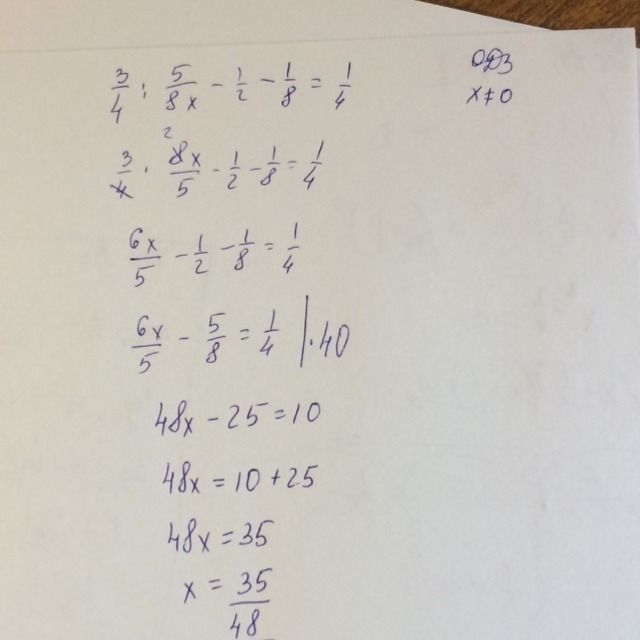 3/4 : 5/8x - 1/2 - 1/8 = 1/4
ОДЗ
x ≠ 0
3/4 · 8x/5 - 1/2 - 1/8 = 1/4
2
6x/5 - 1/2 - 1/8 = 1/4
6x/5 - 5/8 = 1/4 | · 40
48x - 25 = 10
48x = 10 + 25
48x = 35
x = 35/48